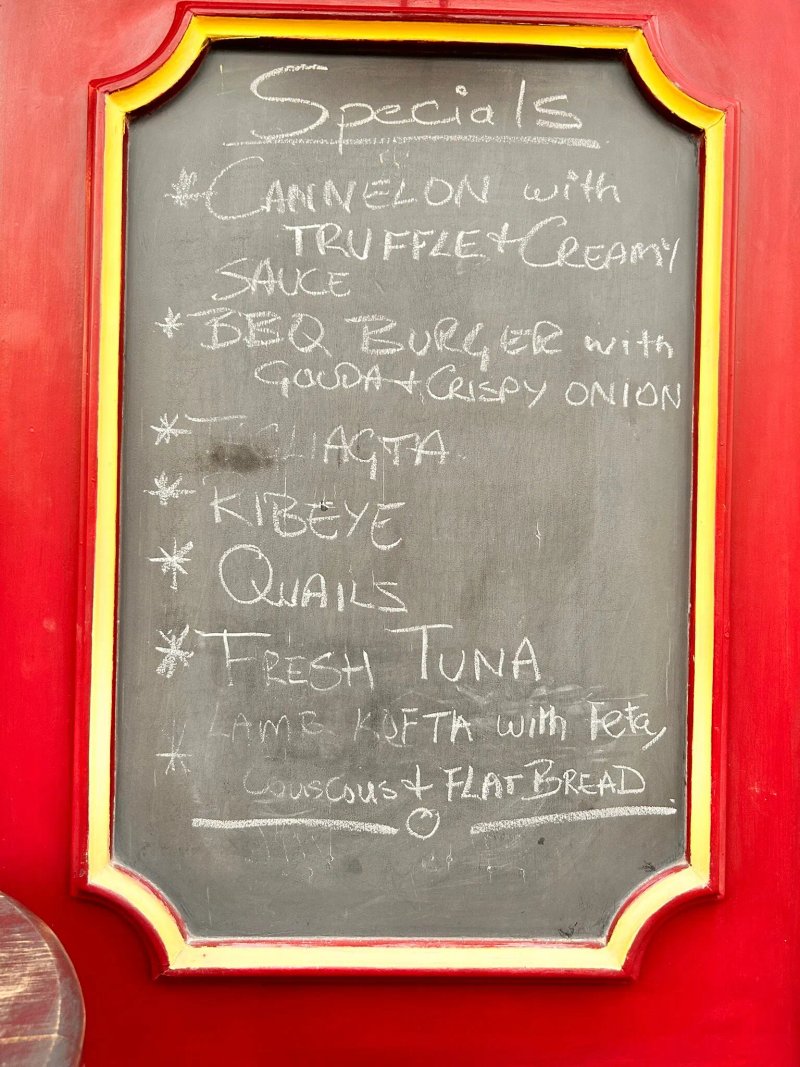 Specials
* CANNELON with
TRUFFLE + CREAMY
SAUCE
* BBQ BURGER with
GOUDA + CRISPY ONION
* TAGLIAGTA
* RIBEYE
* QUAILS
* FRESH TUNA
* LAMB KOFTA with Feta,
couscous + FLAT BREAD